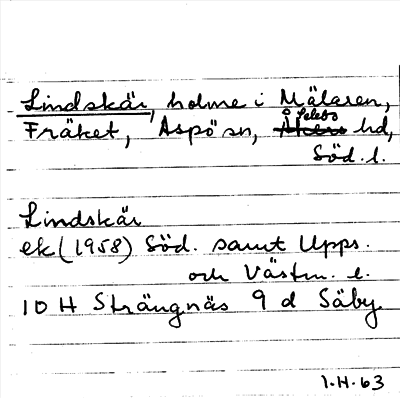 Lindskär, holme i Mälaren,
Fräket, Aspö sn, Åkers Selebo hd,
Söd. l.
Lindskär
ek (1958) Söd. samt Upps.
och Västm. l.
10 H Strängnäs 9 d Säby
1.H.63